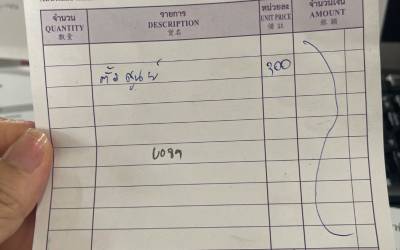 จำนวน รายการ หน่วยละ จำนวนเงิน
QUANTITY DESCRIPTION UNIT PRICE AMOUNT
數量 貨名
ตั้งศูนย์ 300